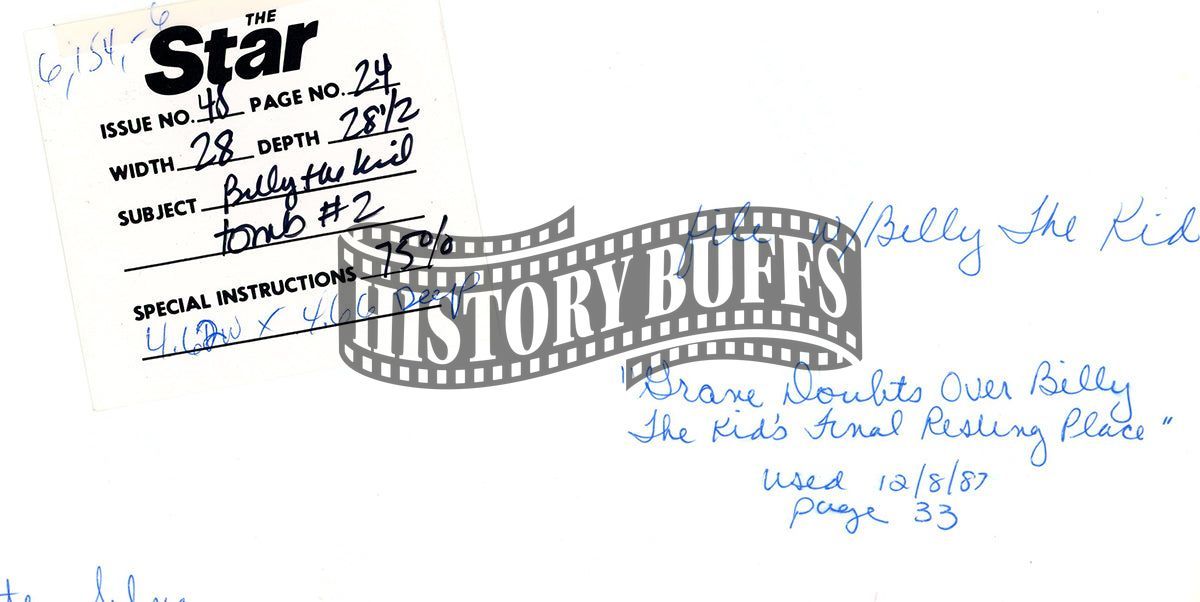 6,154,-6
THE
Star
ISSUE NO. 48 PAGE NO. 24
WIDTH 28 DEPTH 28 1/2
SUBJECT Billy the Kid
tomb #2
SPECIAL INSTRUCTIONS 75%
4.62w x 4.66 Deep
HISTORY BUFFS
file w/Billy The Kid
"Grave Doubts Over Billy
The Kid's Final Resting Place"
Used 12/8/87
page 33